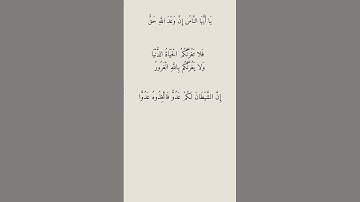 يَا أَيُّهَا النَّاسُ إِنَّ وَعْدَ اللَّهِ حَقٌّ
فَلَا تَغُرَّنَّكُمُ الْحَيَاةُ الدُّنْيَا
وَلَا يَغُرَّنَّكُم بِاللَّهِ الْغَرُورُ
إِنَّ الشَّيْطَانَ لَكُمْ عَدُوٌّ فَاتَّخِذُوهُ عَدُوًّا